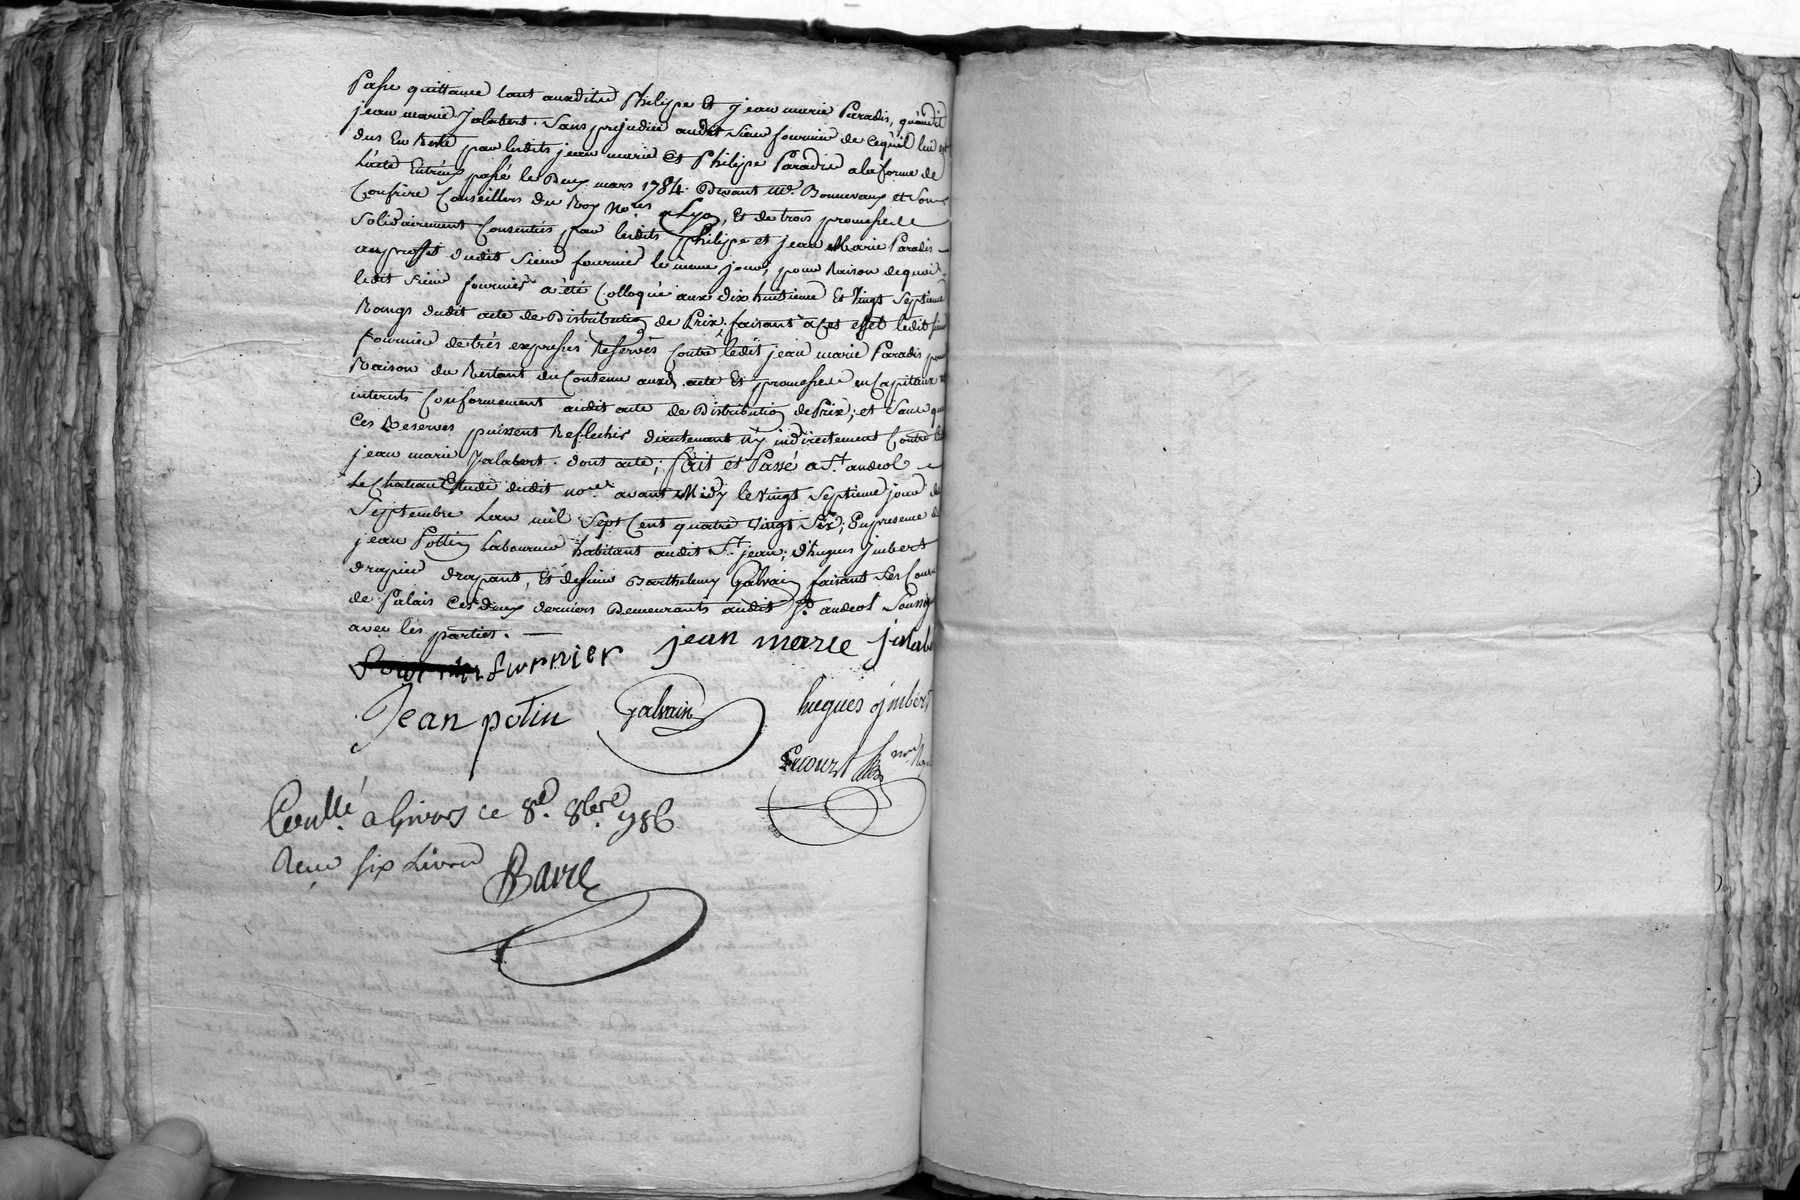 Passe quittance tant auxdits Philipe Et jean marie Paradis, qu'audit
jean marie Jalabert. Sans prejudice audit Sieur fournier de ce qu'il lui est
dus En Reste par lesdits jean marie Et Philipe Paradis a la forme de
L'acte Entreux passé le Deux mars 1784. Devant me. Bonnevaux et Son
Confrère Conseillers du Roy Nores a Lyon, Et de trois promesses
Solidairement Consenties par lesdits philipe et jean Marie Paradis
au proffit dudit Sieur fournier le meme jour, pour Raison de quoi
ledit Sieur fournier a été Colloqué aux dix huitieme Et Vingt Septieme
Rangs dudit acte de Distribution de Prix; faisant a Cet effet ledit Sieur
fournier de trés expresses Reserves Contre ledit jean marie Paradis pour
Raison du Restant du Contenu auxd. acte Et promesses en Capitaux
interests Conformement audit acte de Distribution de Prix; et Sans que
Ces Reserves puissent Reflechir directement n'y indirectement Contre led
jean marie Jalabert. dont acte; fait et Passé a St. andeol
Le Chateau Etude dudit nore. avant Midy le Vingt Septieme jour de
Septembre Lan mil Sept Cent quatre Vingt Six; En presence de
jean Pottin Laboureur habitant audit St. jean; d'hugues jmbert
drapier drapant, Et de Sieur Barthelemy Galvain faisant Ses Cours
de Palais Ces deux derniers Demeurants audit St. andeol Soussignés
avec les parties.
furnier jean marie jalab
Jean potin Galvain hugues jmbert
Conllé a Givors ce 8e. 8bre 1786
Reçu six Livres Barre